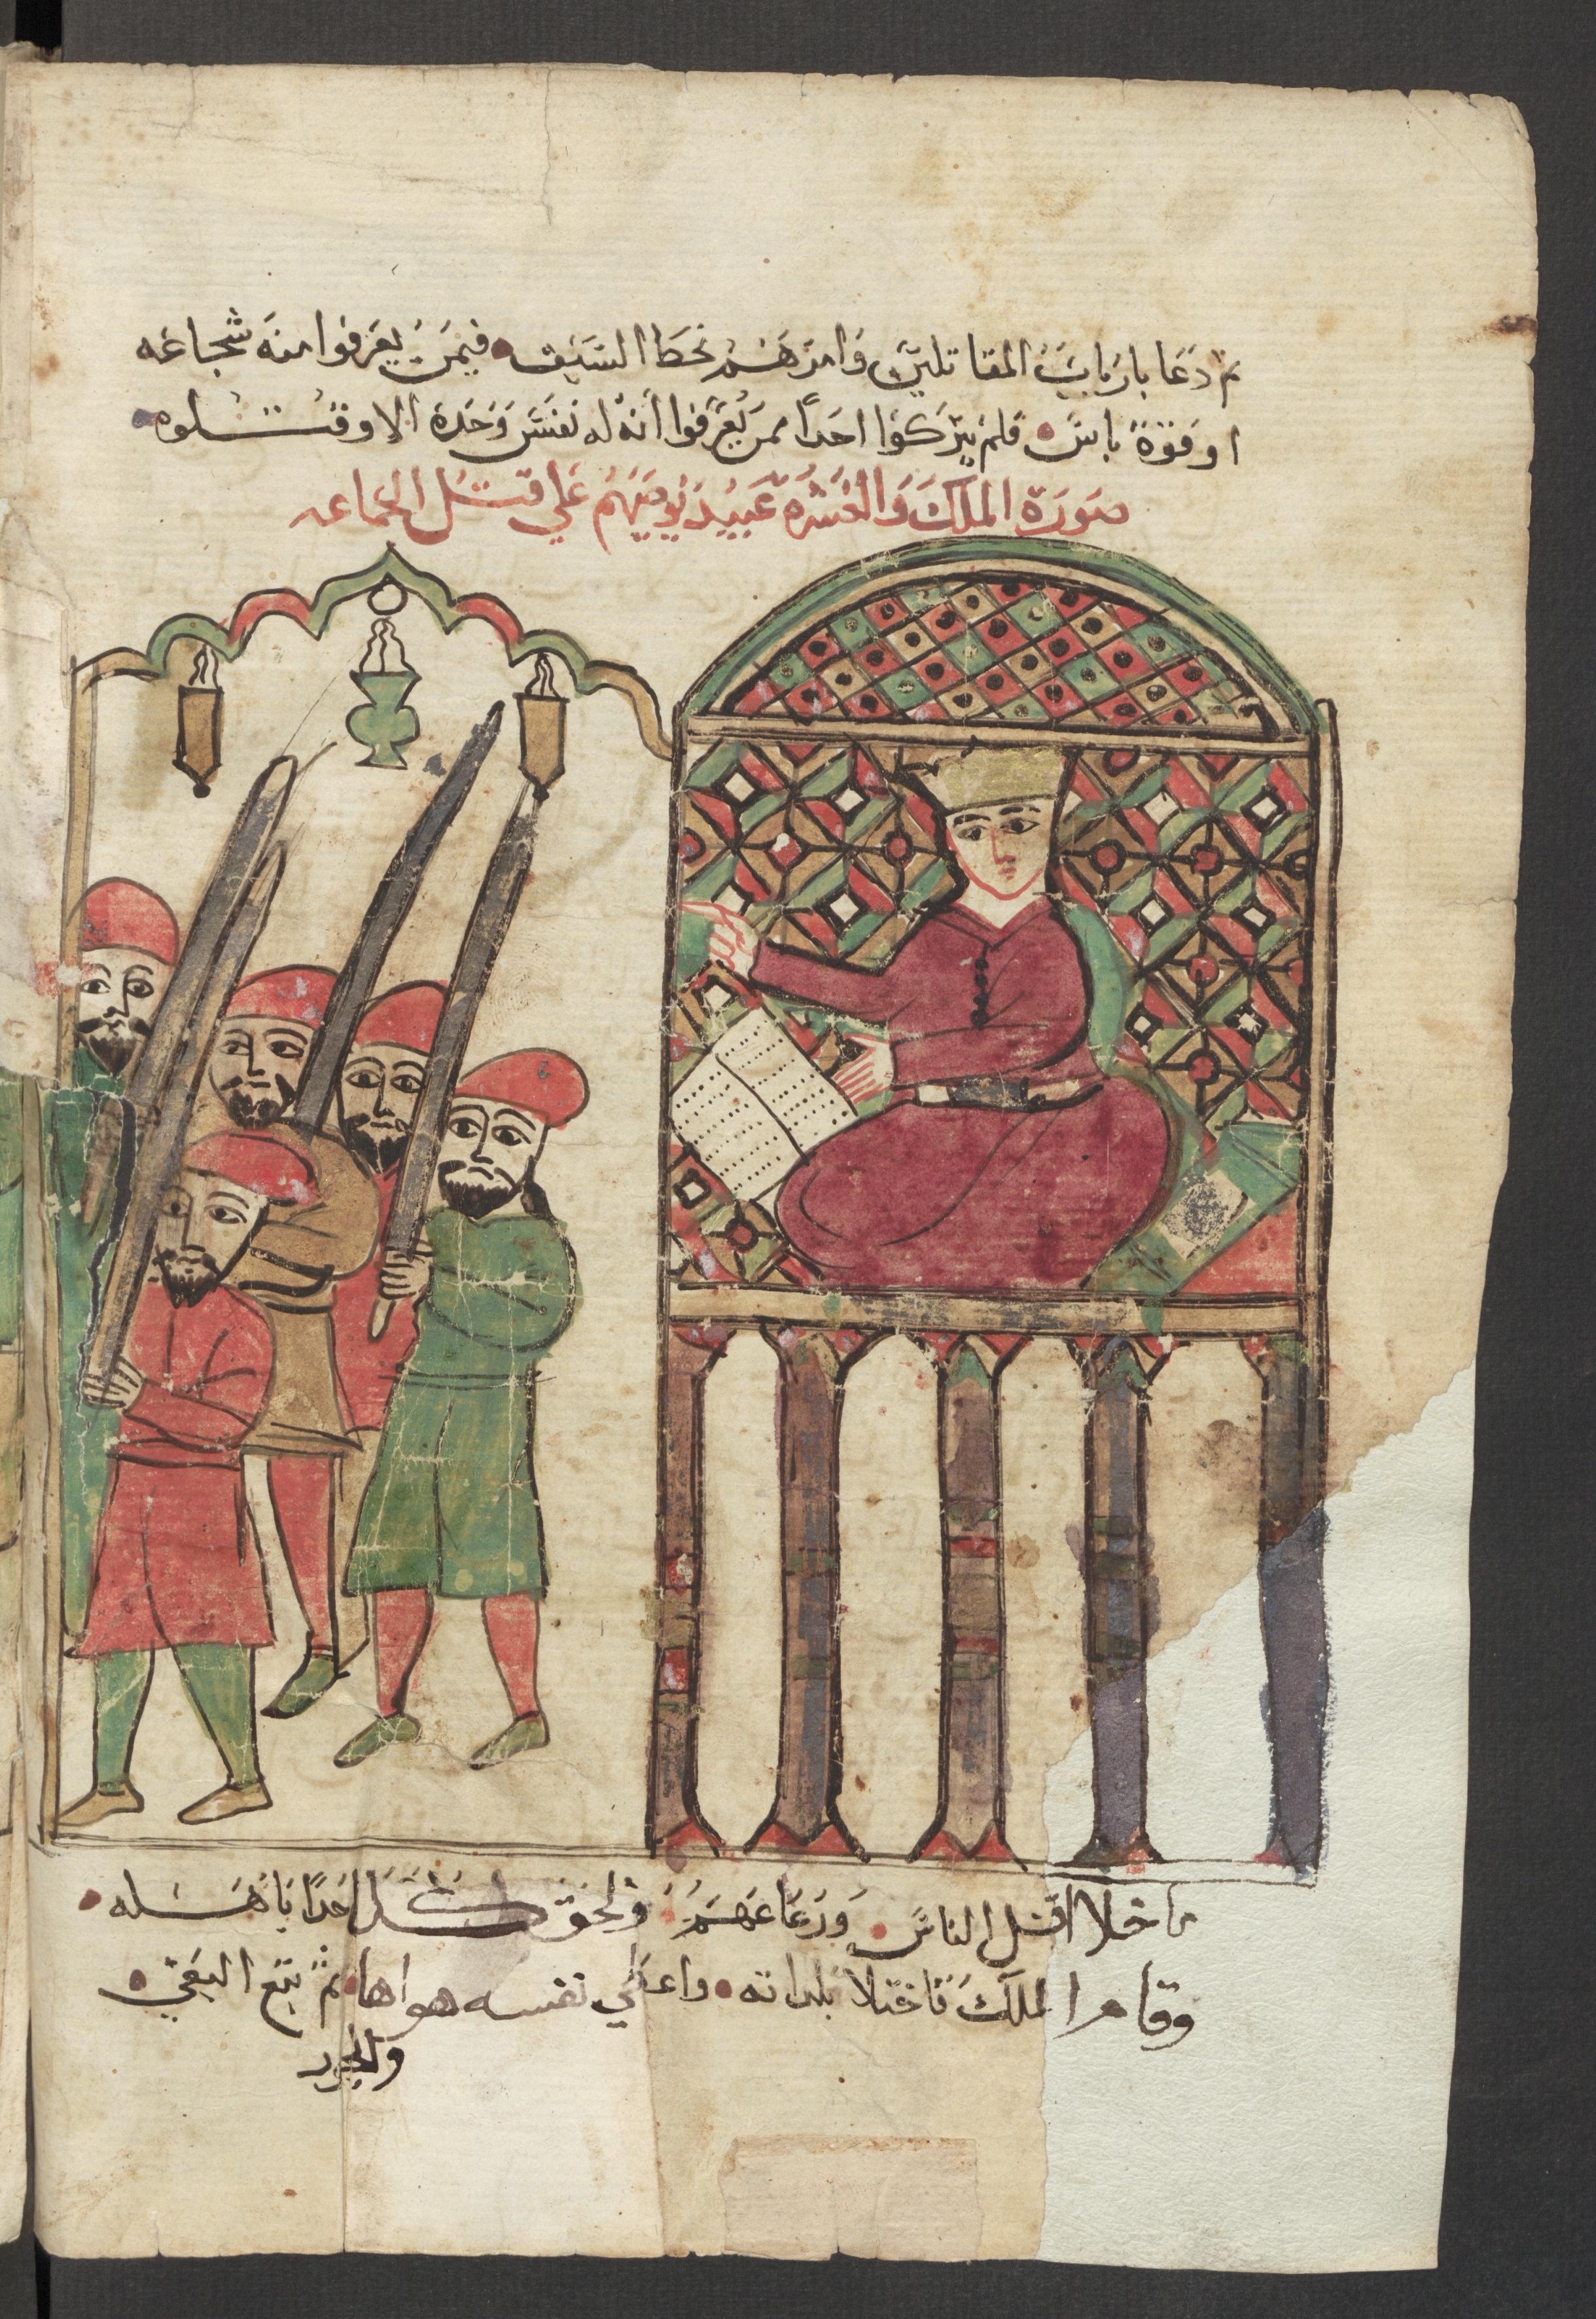 ثم دَعَا بارَبابَ المقاتلين وَامرَهَم نحط السَيف فيمَن يعَرفوا منه شجاعه
او قوَة باسَ فلم يترَكوَا احَداً ممن يُعرَفوا انهُ له نفسَ وَحَدة الا وقتلوه
صَورَة الملكَ وَالعَشرَة عَبيد يُوصَيهَم عَلي قتل الجماعه
اقتل الناسَ وَرَعَاعَهَمَ ولحق احدًا باهَله
وقام الملكَ فاختلا بلداته واعطي نفسه هواها ثم تتبع البغي
والجور